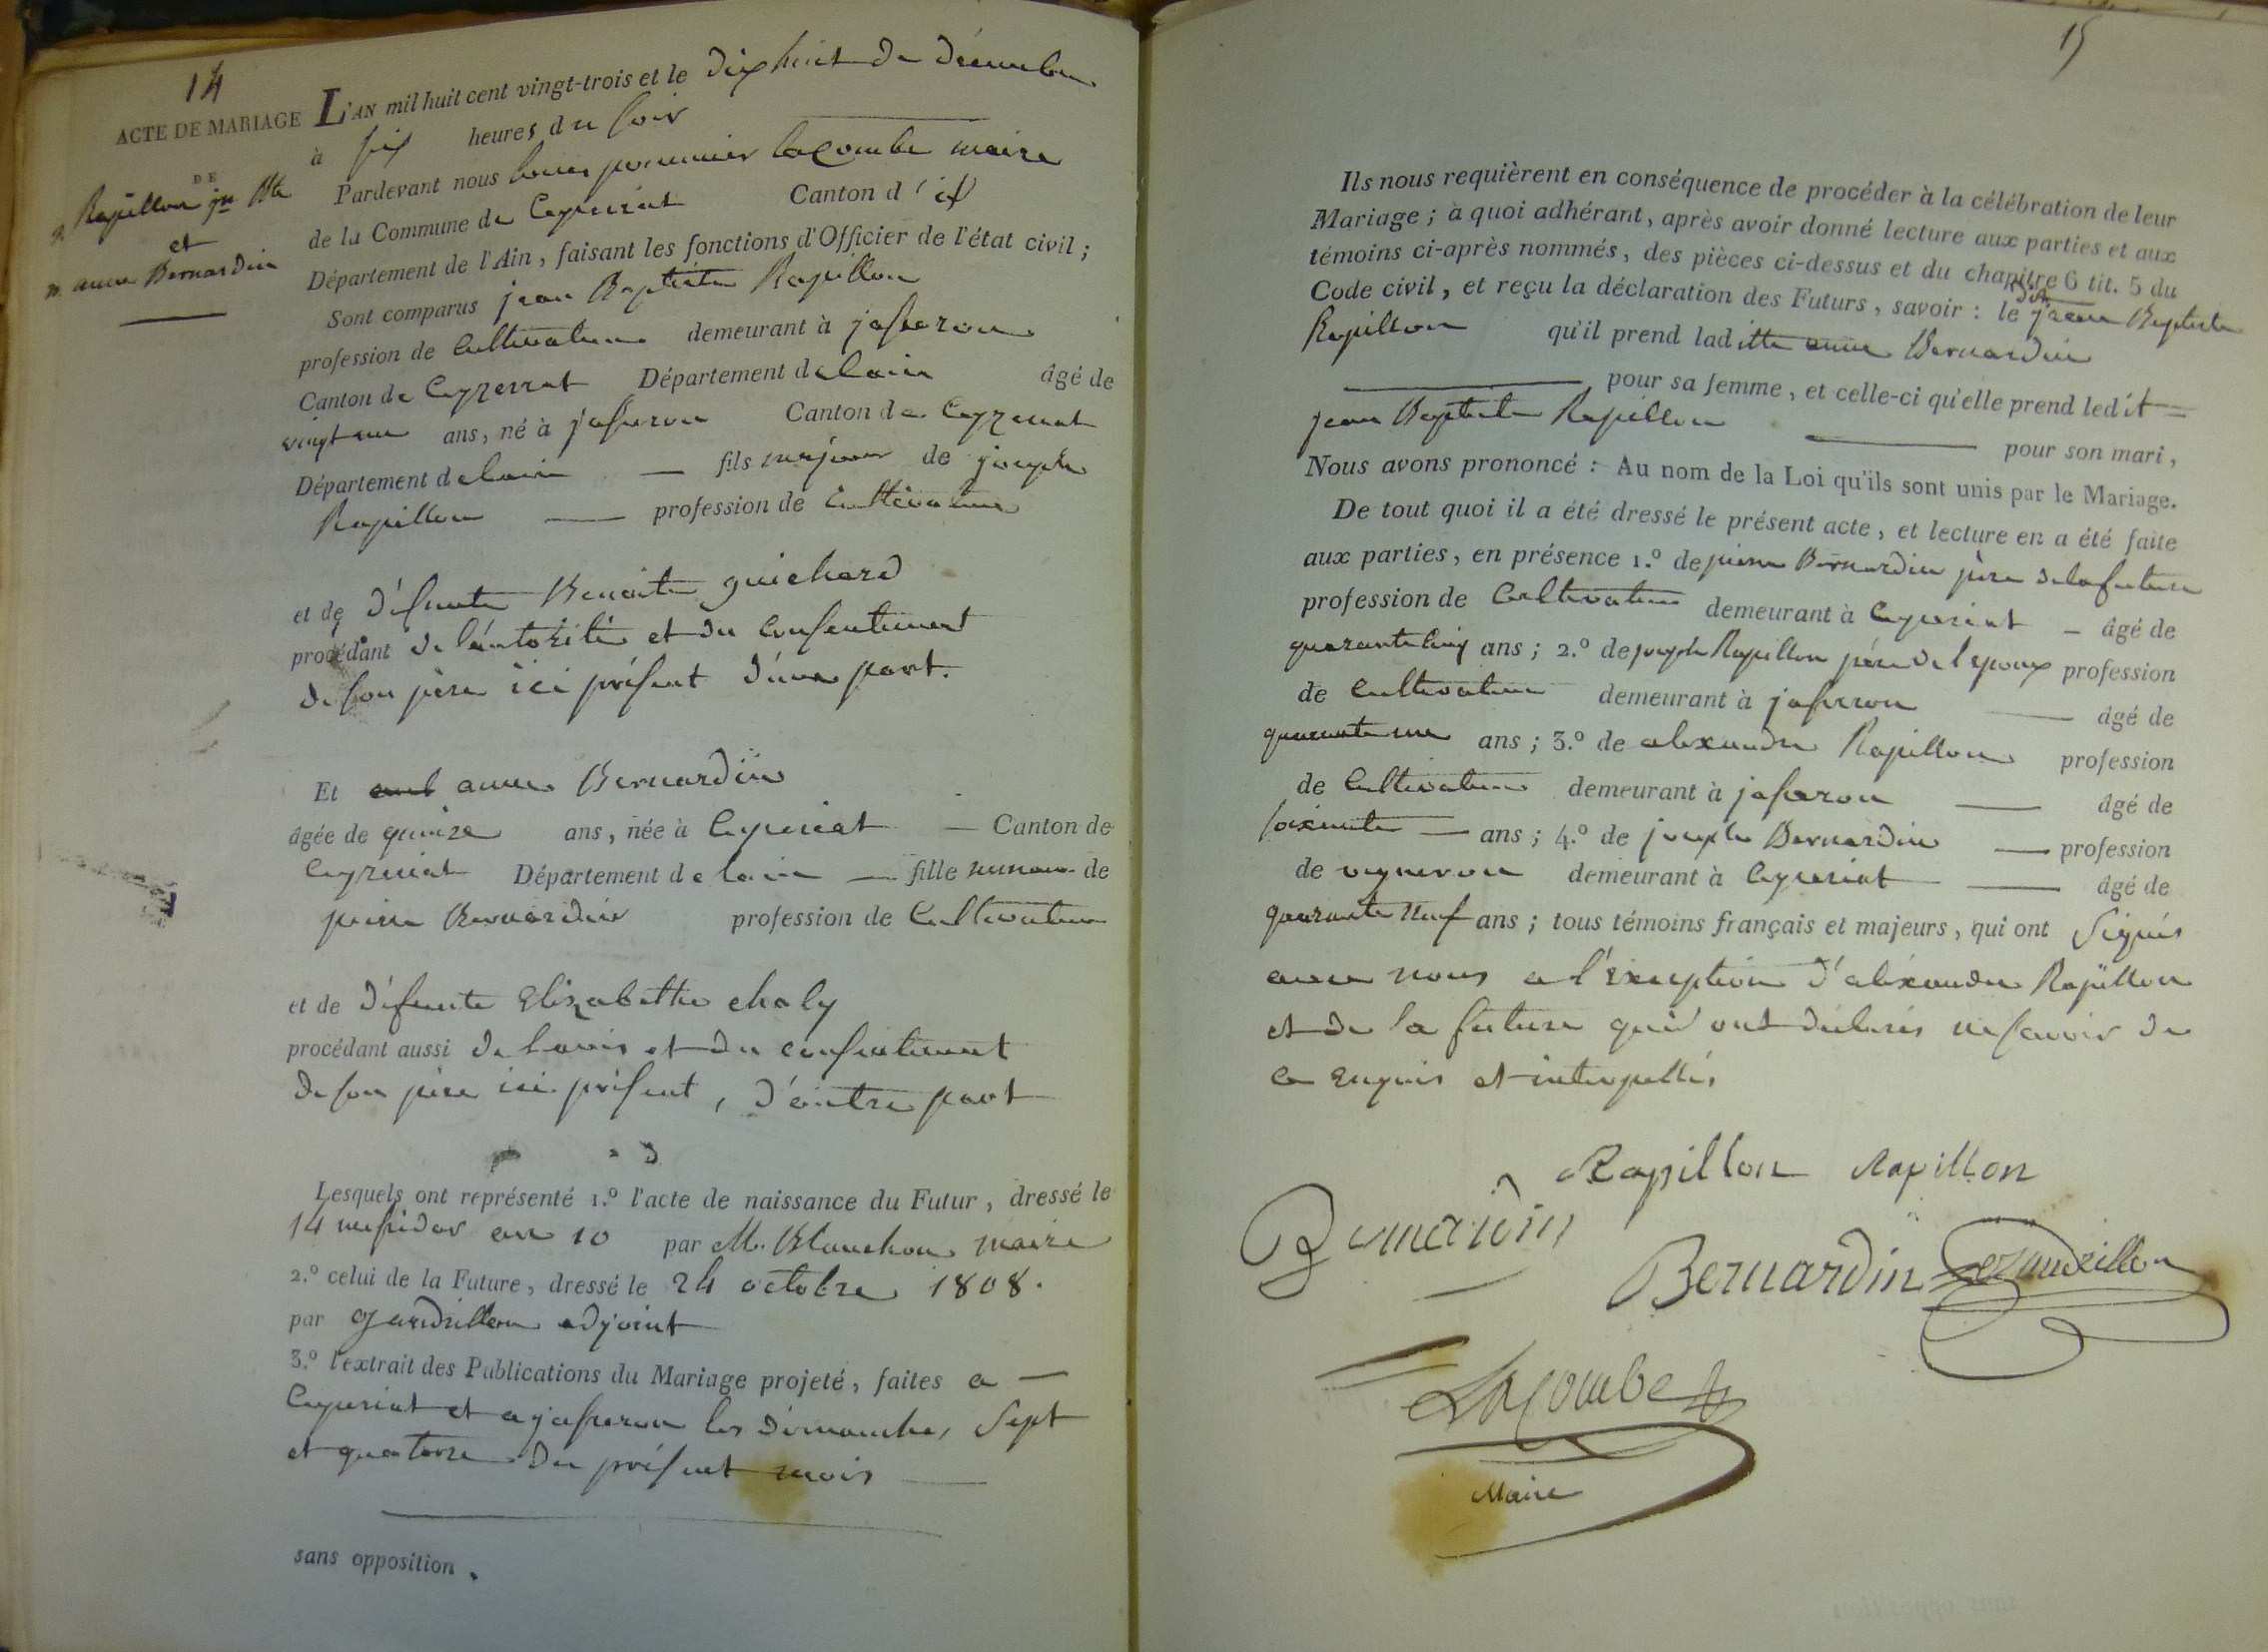 14
ACTE DE MARIAGE
DE
Rapillon jn Bte
et
anne Bernardin
L'AN mil huit cent vingt-trois et le dix huit de décembre
à six heures du soir
Pardevant nous Louis pommier lacombe maire
de la Commune de Ceyzeriat Canton d'id
Département de l'Ain, faisant les fonctions d'Officier de l'état civil ;
Sont comparus jean Baptiste Rapillon
profession de Cultivateur demeurant à jasseron
Canton de Ceyzeriat Département de lain âgé de
vingt un ans, né à jasseron Canton de Ceyzeriat
Département de lain — fils majeur de joseph
Rapillon — profession de Cultivateur
et de défunte Benoite guichard
procédant de l'autorité et du Consentement
de son père ici présent d'une part.
Et anne Bernardin
âgée de quinze ans, née à Ceyzeriat — Canton de
Ceyzeriat Département de lain — fille mineure de
pierre Bernardin profession de Cultivateur
et de défunte Elizabethe chaly
procédant aussi de lavis et du consentement
de son père ici présent, d'autre part
Lesquels ont représenté 1.° l'acte de naissance du Futur, dressé le
14 messidor an 10 par M. Blanchon maire
2.° celui de la Future, dressé le 24 octobre 1808.
par adjoint
3.° l'extrait des Publications du Mariage projeté, faites a —
Ceyzeriat et a jasseron les dimanches sept
et quatorze du présent mois —
sans opposition.
15
Ils nous requièrent en conséquence de procéder à la célébration de leur
Mariage ; à quoi adhérant, après avoir donné lecture aux parties et aux
témoins ci-après nommés, des pièces ci-dessus et du chapitre 6 tit. 5 du
Code civil, et reçu la déclaration des Futurs, savoir : le dit jean Baptiste
Rapillon qu'il prend laditte anne Bernardin
— pour sa femme, et celle-ci qu'elle prend ledit =
jean Baptiste Rapillon — pour son mari,
Nous avons prononcé : Au nom de la Loi qu'ils sont unis par le Mariage.
De tout quoi il a été dressé le présent acte, et lecture en a été faite
aux parties, en présence 1.° de pierre Bernardin père de la future
profession de Cultivateur demeurant à Ceyzeriat — âgé de
quarante cinq ans ; 2.° de joseph Rapillon père de l epoux profession
de Cultivateur demeurant à jasseron — âgé de
ans ; 3.° de alexandre Rapillon profession
de Cultivateur demeurant à jasseron — âgé de
soixante — ans ; 4.° de joseph Bernardin — profession
de vigneron demeurant à Ceyzeriat — âgé de
quarante neuf ans ; tous témoins français et majeurs, qui ont signés
avec nous a l'exeption d'alexandre Rapillon
et de la future qui ont déclarés ne savoir de
ce enquis et interpellés
Rapillon Rapillon
Bernardin
Bernardin
Lacombe
Maire